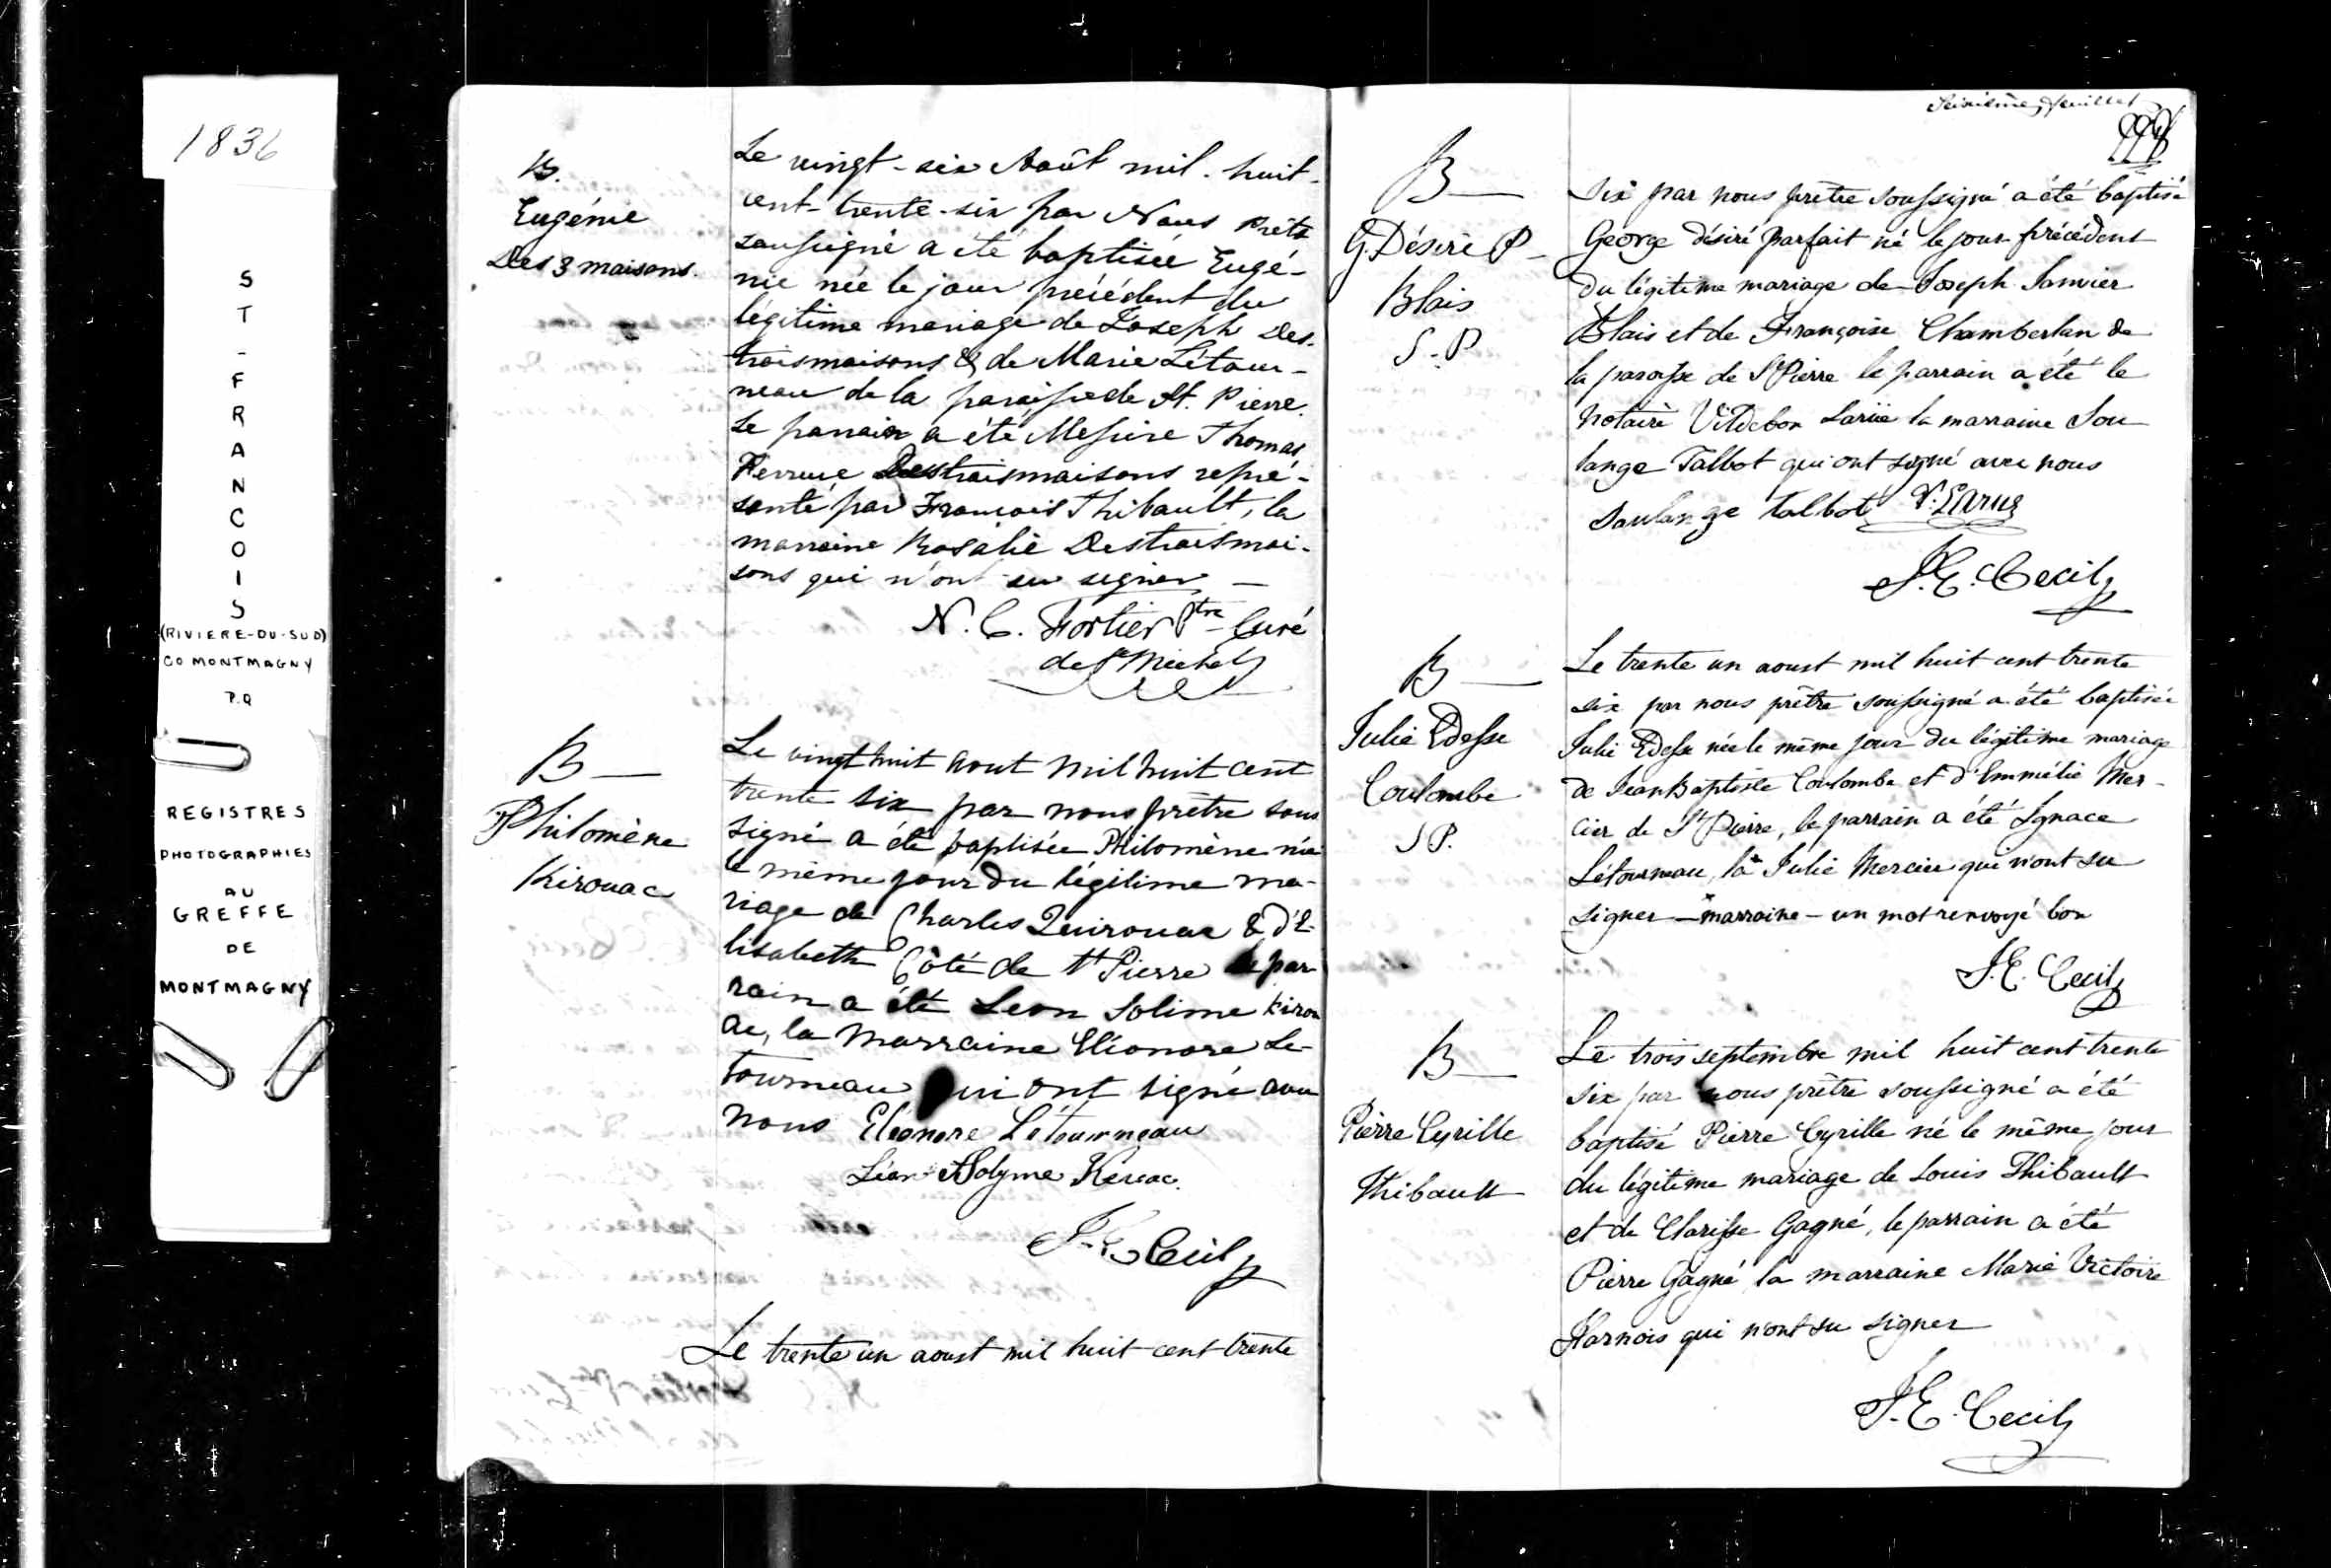 1836
ST-FRANCOIS
(RIVIERE-DU-SUD)
CO MONTMAGNY
P.Q
REGISTRES
PHOTOGRAPHIES
AU
GREFFE
DE
MONTMAGNY
B.
Eugénie
Des 3 maisons.
Le vingt-six Août mil-huit-
cent-trente-six par Nous Prêtre
soussigné a été baptisée Eugé-
nie née le jour précédent du
légitime mariage de Joseph Des-
troismaisons & de Marie Létour-
neau de la paroisse de St. Pierre.
Le parrain a été Messire Thomas
Ferruce Destroismaisons repré-
senté par François Thibault, la
marraine Rosalie Destroismai-
sons qui n'ont su signer —
N. C. Fortier Ptre Curé
de St Michel
B —
Philomène
Kirouac
Le vingt huit aout mil huit cent
trente six par nous prêtre sous
signé a été baptisée Philomène née
le même jour du légitime ma-
riage de Charles Quirouac & d'E-
lisabeth Côté de St Pierre le par-
rain a été Leon Solime Kirou
ac, la marraine Eléonore Le-
tourneau qui ont signé avec
nous Eléonore Létourneau
Léon Solyme Keroac.
J. E. Cecil
Le trente un aoust mil huit cent trente
Seizième feuillet
B —
G. Désiré P —
Blais
S. P
six par nous prêtre soussigné a été baptisé
George désiré parfait né le jour précédent
du légitime mariage de Joseph Janvier
Blais et de Françoise Chamberlan de
la paroisse de St Pierre le parrain a été le
notaire Vildebon Larüe la marraine Sou
lange Talbot qui ont signé avec nous
Soulange talbot V. Larue
J. E. Cecil
B —
Julie Edesse
Coulombe
S P.
Le trente un aoust mil huit cent trente
six par nous prêtre soussigné a été baptisée
Julie Edesse née le même jour du légitime mariage
de Jean Baptiste Coulombe et d'Emmélie Mer-
cier de St Pierre, le parrain a été Ignace
Létourneau, la * Julie Mercier qui n'ont su
signer — * marraine — un mot renvoyé bon
J. E. Cecil
B —
Pierre Cyrille
Thibault
Le trois septembre mil huit cent trente
six par nous prêtre soussigné a été
baptisé Pierre Cyrille né le même jour
du légitime mariage de Louis Thibault
et de Clarisse Gagné, le parrain a été
Pierre Gagné la marraine Marie Victoire
Harnois qui n'ont su signer
J. E. Cecil